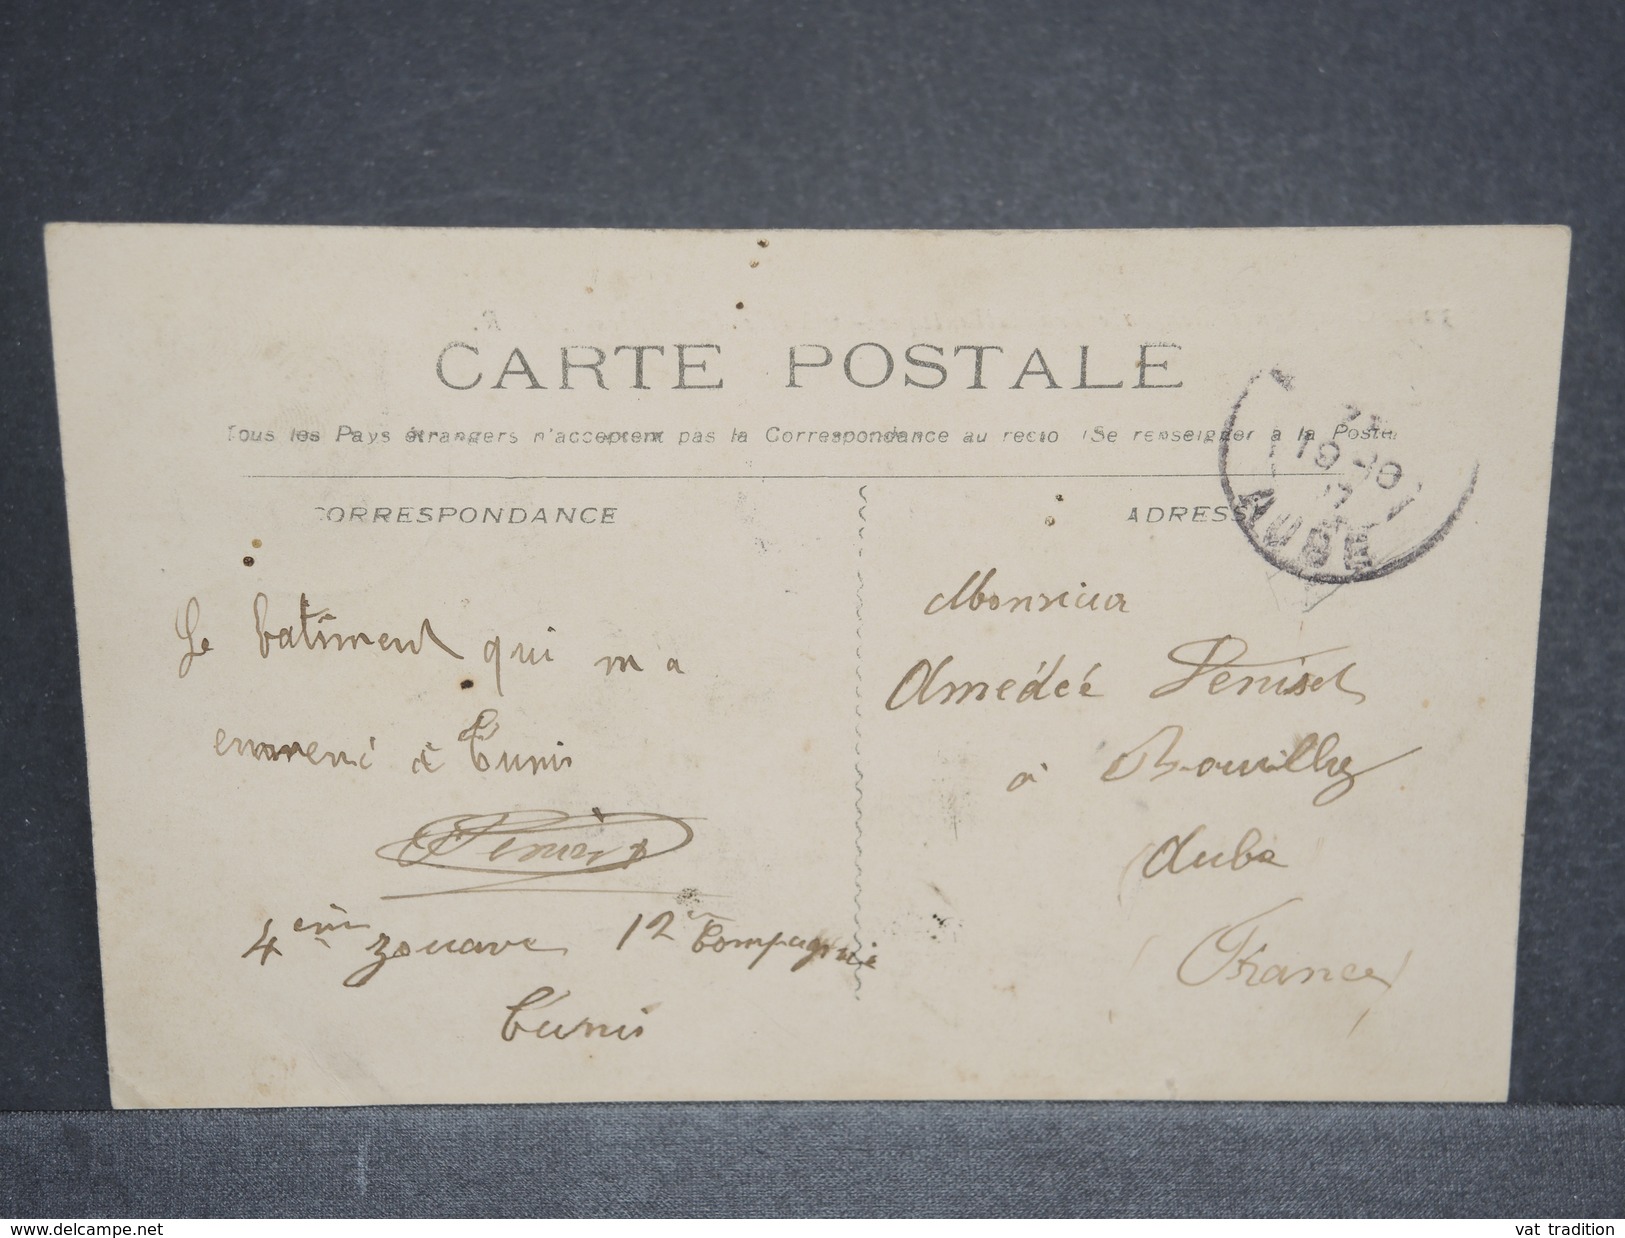 CARTE POSTALE
Tous les Pays étrangers n'acceptent pas la Correspondance au recto (Se renseigner à la Poste
CORRESPONDANCE
Le batîment qui m a
emmené à Tunis
4eme zouave 12e Compagnie
Tunis
ADRESSE
AUBE
Monsieur
Amédée Peniset
à Bouilly
Aube
France
www.delcampe.net
vat tradition